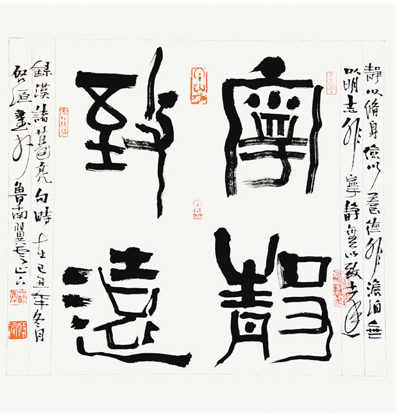 寧靜
致遠
靜以脩身儉以養德非澹泊無
以明志非寧靜無以致遠
錄漢諸葛亮句時在己丑年冬月
魯南翼雲